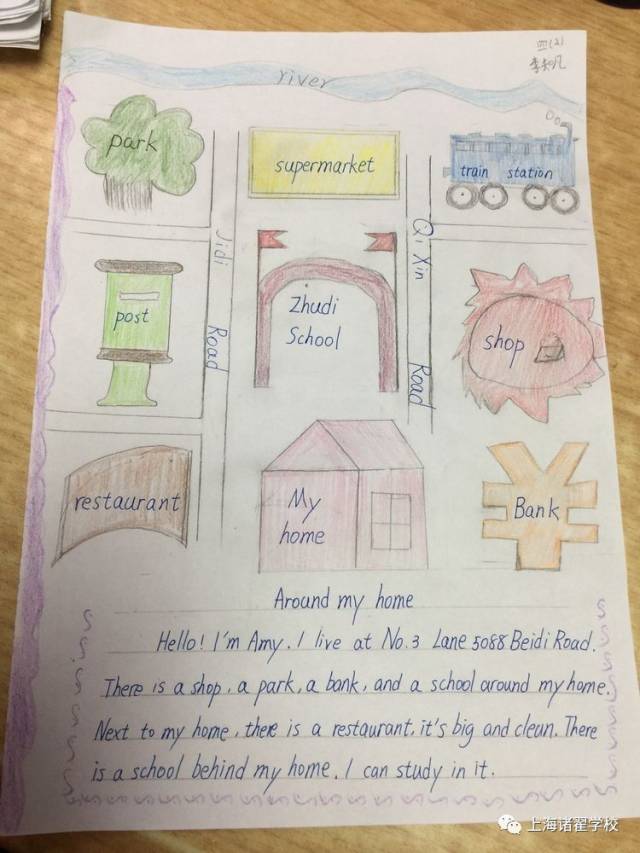 river
四(2)
李知凡
park
supermarket
train station
Jidi Road
Qi Xin Road
post
Zhudi
School
shop
restaurant
My
home
Bank
Around my home
Hello! I'm Amy. I live at No.3 Lane 5088 Beidi Road.
There is a shop, a park, a bank, and a school around my home.
Next to my home, there is a restaurant, it's big and clean. There
is a school behind my home. I can study in it.
上海诸翟学校